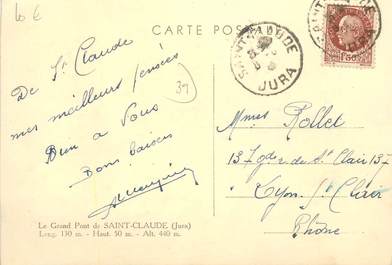 10 €
CARTE POS
SAINT-CLAUDE
JURA
SAINT-CLAUDE
JURA
1F50
De St Claude
mes meilleurs pensées
39
Bien à Vous
Bons baisers
Mmes Rollet
137 gde r de St Clair 137
Lyon St Clair
Rhône
Le Grand Pont de SAINT-CLAUDE (Jura)
Long. 130 m. - Haut. 50 m. - Alt. 440 m.